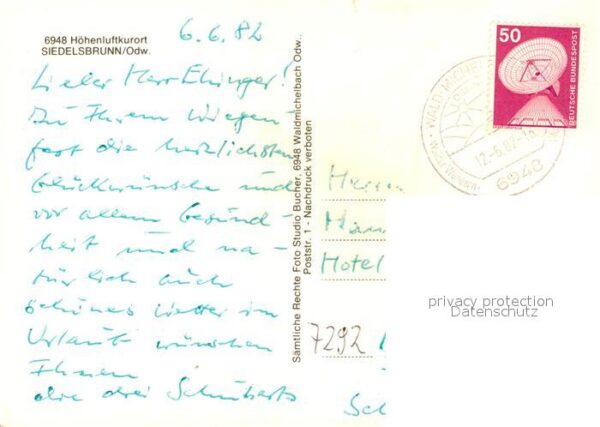 6948 Höhenluftkurort
SIEDELSBRUNN/Odw.
6.6.82
Lieber Herr Ehinger!
Zu Ihrem Wiegen-
fest die herzlichsten
Glückwünsche und
vor allem Gesund-
heit und na-
türlich auch
schönes Wetter im
Urlaub wünschen
Ihnen
die drei Schuberts
Sämtliche Rechte Foto Studio Bucher, 6948 Waldmichelbach Odw.,
Poststr. 1 - Nachdruck verboten
50
DEUTSCHE BUNDESPOST
WALD-MICHEL
12.-6.82
6948
Herrn
Hotel
7292
privacy protection
Datenschutz